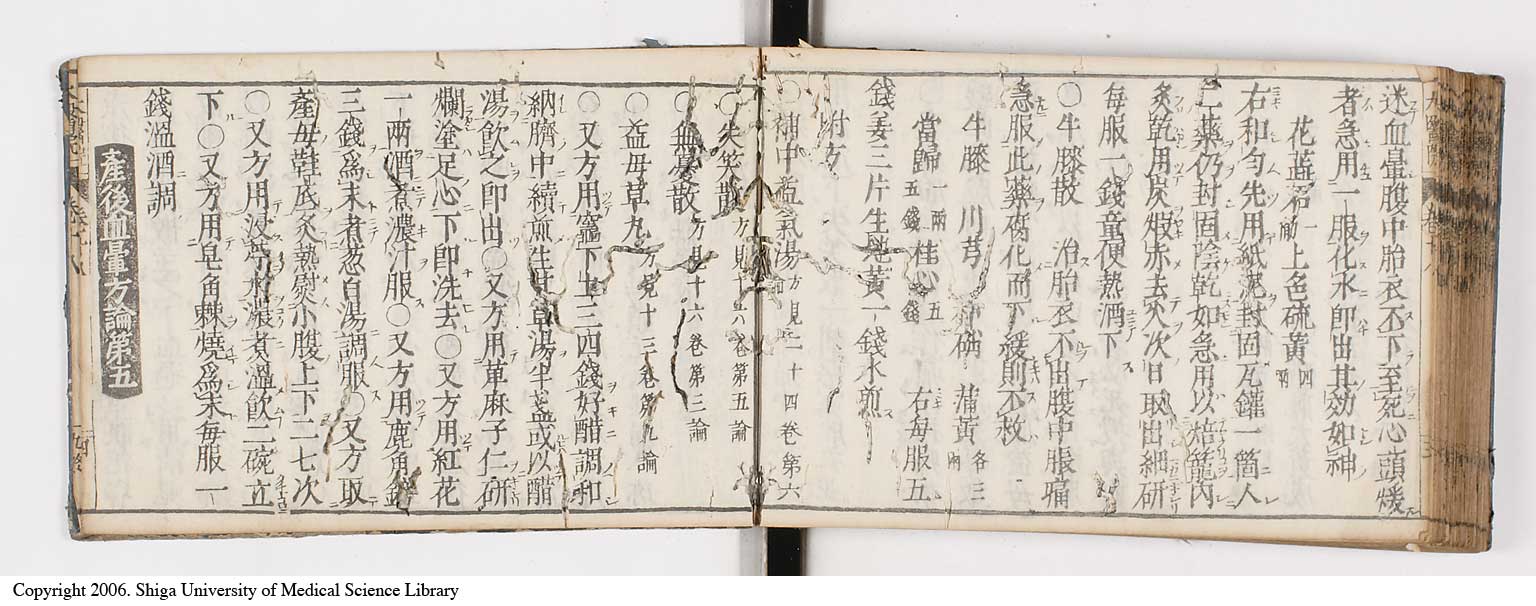 迷血暈腹中胎衣不下至死心頭煖
者急用一服化水即出其効如神
花蕋石一觔 上色硫黄四两
右和匀先用紙泥封固瓦鑵一箇人
二藥仍封固陰乾如急用以焙籠内
炙乾用炭煅赤去火次日取出細研
每服一錢童便熱酒下
〇牛膝散 治胎衣不出腹中脹痛
急服此藥腐化而下緩則不救
牛膝 川芎 朴硝 蒲黄各三兩
當歸一兩五錢 桂心五錢 右每服五
錢姜三片生地黄一錢水煎
附方
〇補中益氣湯方見二十四卷第六論
〇失笑散方見十六卷第五論
〇血暈散方見十六卷第三論
〇益母草丸方見十三卷第九論
〇又方用竈下土三四錢好醋調和
納臍中續煎生甘草湯半盞或以醋
湯飲之即出〇又方用萆麻子仁研
爛塗足心下即洗去〇又方用紅花
一兩酒煮濃汁服〇又方用鹿角鎊
三錢爲末煮葱白湯調服〇又方取
產母鞋底炙熱熨小腹上下二七次
〇又方用水濃煮溫飲二碗立
下〇又方用皂角棘燒爲末每服一
錢溫酒調
產後血暈方論第五
Copyright 2006. Shiga University of Medical Science Library